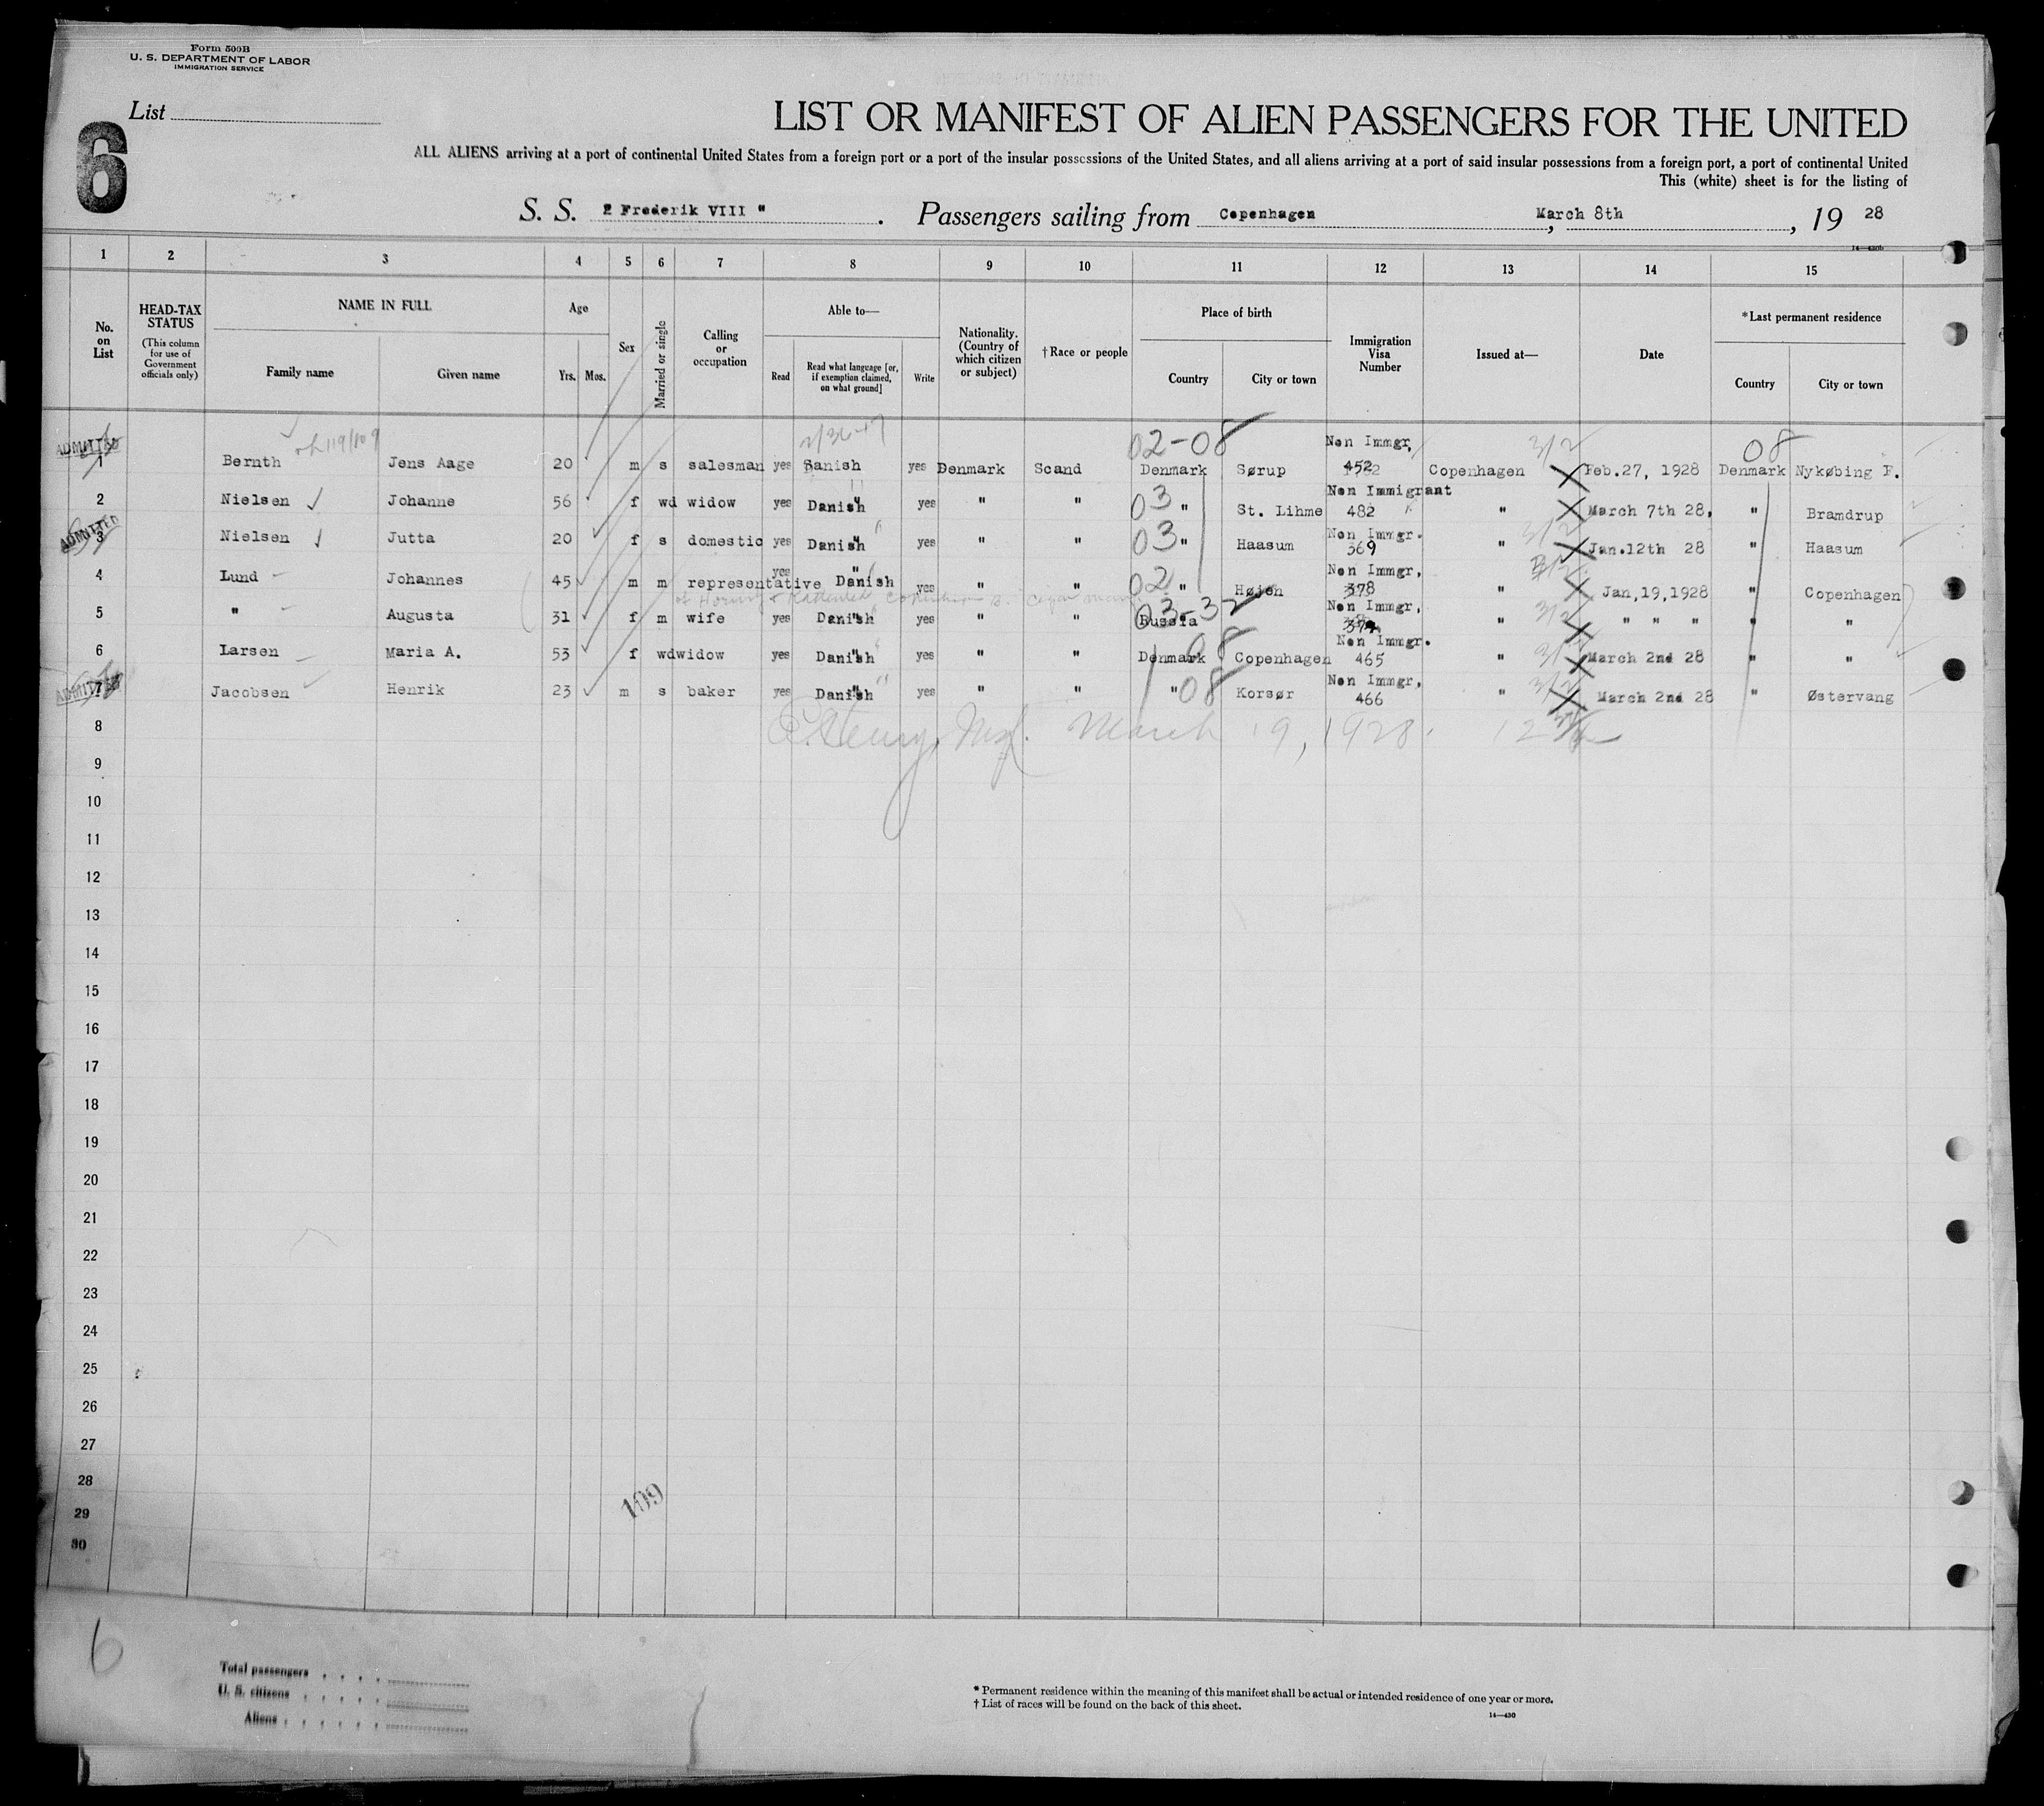 Form 500B
U. S. DEPARTMENT OF LABOR
IMMIGRATION SERVICE
List
6
LIST OR MANIFEST OF ALIEN PASSENGERS FOR THE UNITED
ALL ALIENS arriving at a port of continental United States from a foreign port or a port of the insular possessions of the United States, and all aliens arriving at a port of said insular possessions from a foreign port, a port of continental United
This (white) sheet is for the listing of
S. S. Frederik VIII " . Passengers sailing from Copenhagen , March 8th , 19 28
14—430b
1 2 3 4 5 6 7 8 9 10 11 12 13 14 15
No. on List
HEAD-TAX STATUS
(This column for use of Government officials only)
NAME IN FULL
Family name Given name
Age
Yrs. Mos.
Sex
Married or single
Calling or occupation
Able to—
Read
Read what language [or, if exemption claimed, on what ground]
Write
Nationality. (Country of which citizen or subject)
† Race or people
Place of birth
Country City or town
Immigration Visa Number
Issued at—
Date
* Last permanent residence
Country City or town
02-08 Non Immgr, 3/2 08
ADMITTED
1 Bernth Jens Aage 20 m s salesman yes Danish yes Denmark Scand Denmark Sørup 452 Copenhagen Feb.27, 1928 Denmark Nykøbing F.
Non Immigrant
2 Nielsen Johanne 56 f wd widow yes Danish yes " " 03 " St. Lihme 482 " March 7th 28, " Bramdrup
ADMITTED Non Immgr.
3 Nielsen Jutta 20 f s domestic yes Danish yes " " 03 " Haasum 369 " Jan.12th 28 " Haasum
Non Immgr,
4 Lund Johannes 45 m m representative yes Danish yes " " 02 " Højen 378 " Jan,19,1928 " Copenhagen
03-32 Non Immgr,
5 " Augusta 31 f m wife yes Danish yes " " Russia " " " " " "
Non Immgr.
6 Larsen Maria A. 53 f wd widow yes Danish yes " " Denmark 08 Copenhagen 465 " March 2nd 28 " "
ADMITTED Non Immgr,
7 Jacobsen Henrik 23 m s baker yes Danish yes " " " 08 Korsør 466 " March 2nd 28 " Østervang
8 March 19, 1928.
9
10
11
12
13
14
15
16
17
18
19
20
21
22
23
24
25
26
27
28
109
29
30
6
Total passengers
U. S. citizens
Aliens
* Permanent residence within the meaning of this manifest shall be actual or intended residence of one year or more.
† List of races will be found on the back of this sheet.
14—430